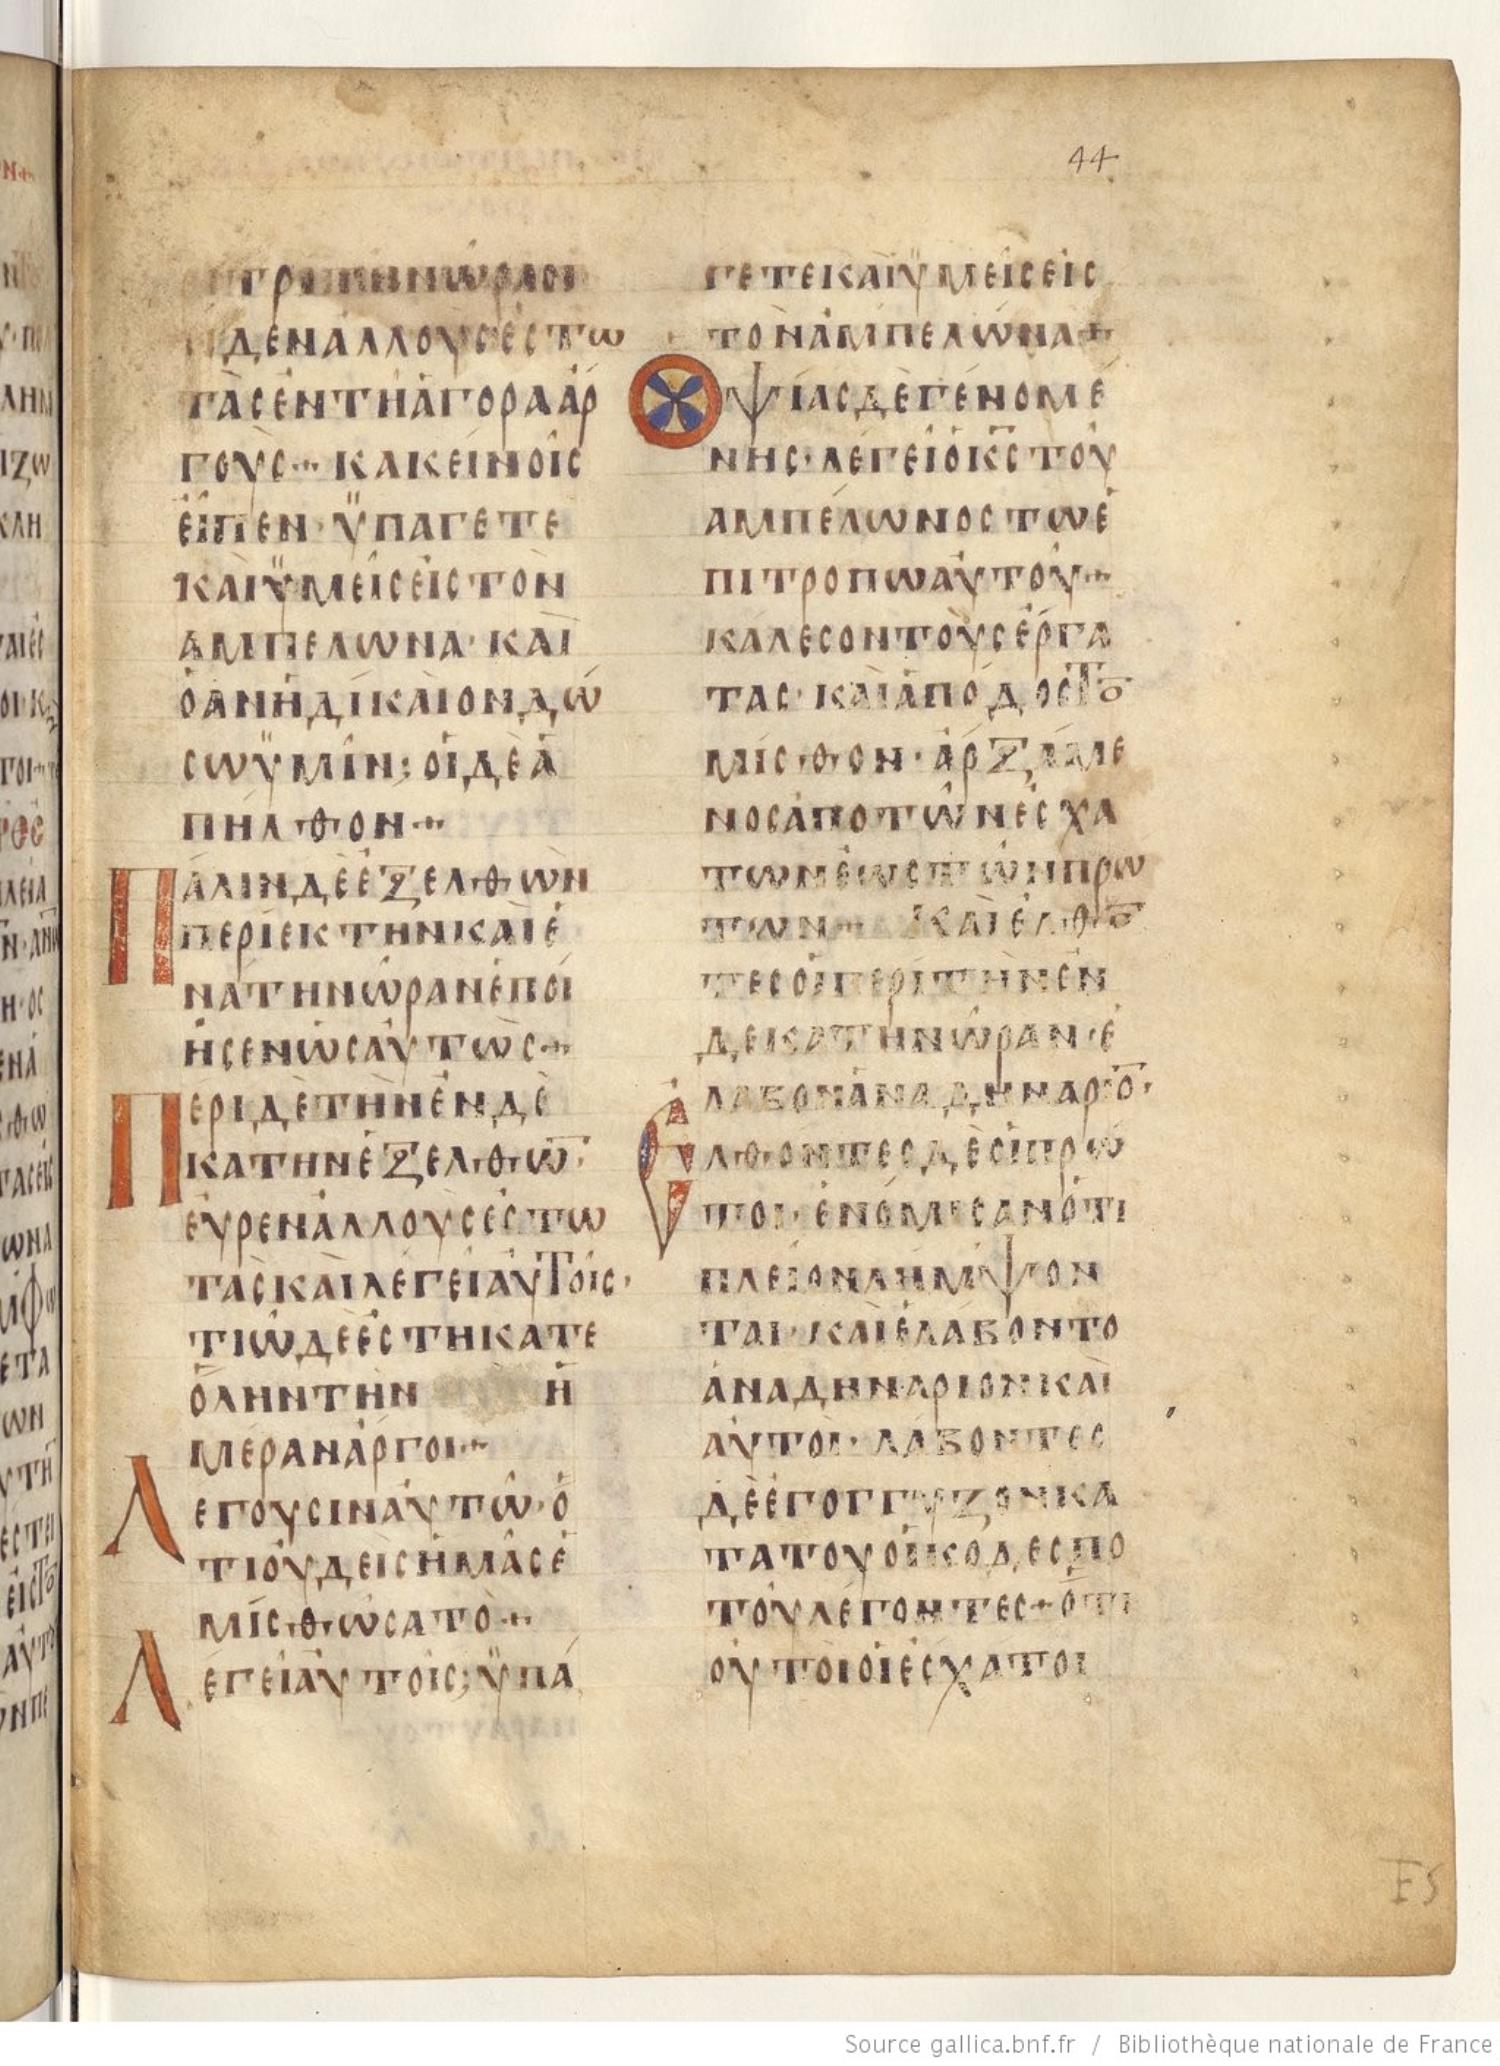 44
ΤΡΙΤΗΝ ΩΡΑΝ ΕΙ
ΔΕΝ ΑΛΛΟΥΣ ΕΣΤΩ
ΤΑΣ ΕΝ ΤΗ ΑΓΟΡΑ ΑΡ
ΓΟΥΣ·ΚΑΚΕΙΝΟΙΣ
ΕΙΠΕΝ·ΫΠΑΓΕΤΕ
ΚΑΙ ΫΜΕΙΣ ΕΙΣ ΤΟΝ
ΑΜΠΕΛΩΝΑ·ΚΑΙ
Ο ΑΝ Η ΔΙΚΑΙΟΝ ΔΩ
ΣΩ ΫΜΙΝ: ΟΙ ΔΕ Α
ΠΗΛΘΟΝ+
ΠΑΛΙΝ ΔΕ ΕΞΕΛΘΩΝ
ΠΕΡΙ ΕΚΤΗΝ ΚΑΙ Ε
ΝΑΤΗΝ ΩΡΑΝ ΕΠΟΙ
ΗΣΕΝ ΩΣΑΥΤΩΣ+
ΠΕΡΙ ΔΕ ΤΗΝ ΕΝΔΕ
ΚΑΤΗΝ ΕΞΕΛΘΩ̅·
ΕΥΡΕΝ ΑΛΛΟΥΣ ΕΣΤΩ
ΤΑΣ ΚΑΙ ΛΕΓΕΙ ΑΥΤΟΙΣ·
ΤΙ ΩΔΕ ΕΣΤΗΚΑΤΕ
ΟΛΗΝ ΤΗΝ Η
ΜΕΡΑΝ ΑΡΓΟΙ+
ΛΕΓΟΥΣΙΝ ΑΥΤΩ·Ο
ΤΙ ΟΥΔΕΙΣ ΗΜΑΣ Ε
ΜΙΣΘΩΣΑΤΟ+
ΛΕΓΕΙ ΑΥΤΟΙΣ; ΫΠΑ
ΓΕΤΕ ΚΑΙ ΫΜΕΙΣ ΕΙΣ
ΤΟΝ ΑΜΠΕΛΩΝΑ+
ΟΨΙΑΣ ΔΕ ΓΕΝΟΜΕ
ΝΗΣ·ΛΕΓΕΙ Ο Κ̅Σ̅ ΤΟΥ
ΑΜΠΕΛΩΝΟΣ ΤΩ Ε
ΠΙΤΡΟΠΩ ΑΥΤΟΥ+
ΚΑΛΕΣΟΝ ΤΟΥΣ ΕΡΓΑ
ΤΑΣ·ΚΑΙ ΑΠΟΔΟΣ ΤΟ̅
ΜΙΣΘΟΝ·ΑΡΞΑΜΕ
ΝΟΣ ΑΠΟ ΤΩΝ ΕΣΧΑ
ΤΩΝ ΕΩΣ ΤΩΝ ΠΡΩ
ΤΩΝ+ ΚΑΙ ΕΛΘΟ̅
ΤΕΣ ΟΙ ΠΕΡΙ ΤΗΝ ΕΝ
ΔΕΚΑΤΗΝ ΩΡΑΝ·Ε
ΛΑΒΟΝ ΑΝΑ ΔΗΝΑΡΙΟ̅·
ΕΛΘΟΝΤΕΣ ΔΕ ΟΙ ΠΡΩ
ΤΟΙ·ΕΝΟΜΙΣΑΝ ΟΤΙ
ΠΛΕΙΟΝ ΛΗΜΨΟΝ
ΤΑΙ·ΚΑΙ ΕΛΑΒΟΝ ΤΟ
ΑΝΑ ΔΗΝΑΡΙΟΝ ΚΑΙ
ΑΥΤΟΙ·ΛΑΒΟΝΤΕΣ
ΔΕ ΕΓΟΓΓΥΖΟΝ ΚΑ
ΤΑ ΤΟΥ ΟΙΚΟΔΕΣΠΟ
ΤΟΥ ΛΕΓΟΝΤΕΣ+ΟΤΙ
ΟΥΤΟΙ ΟΙ ΕΣΧΑΤΟΙ
Source gallica.bnf.fr / Bibliothèque nationale de France